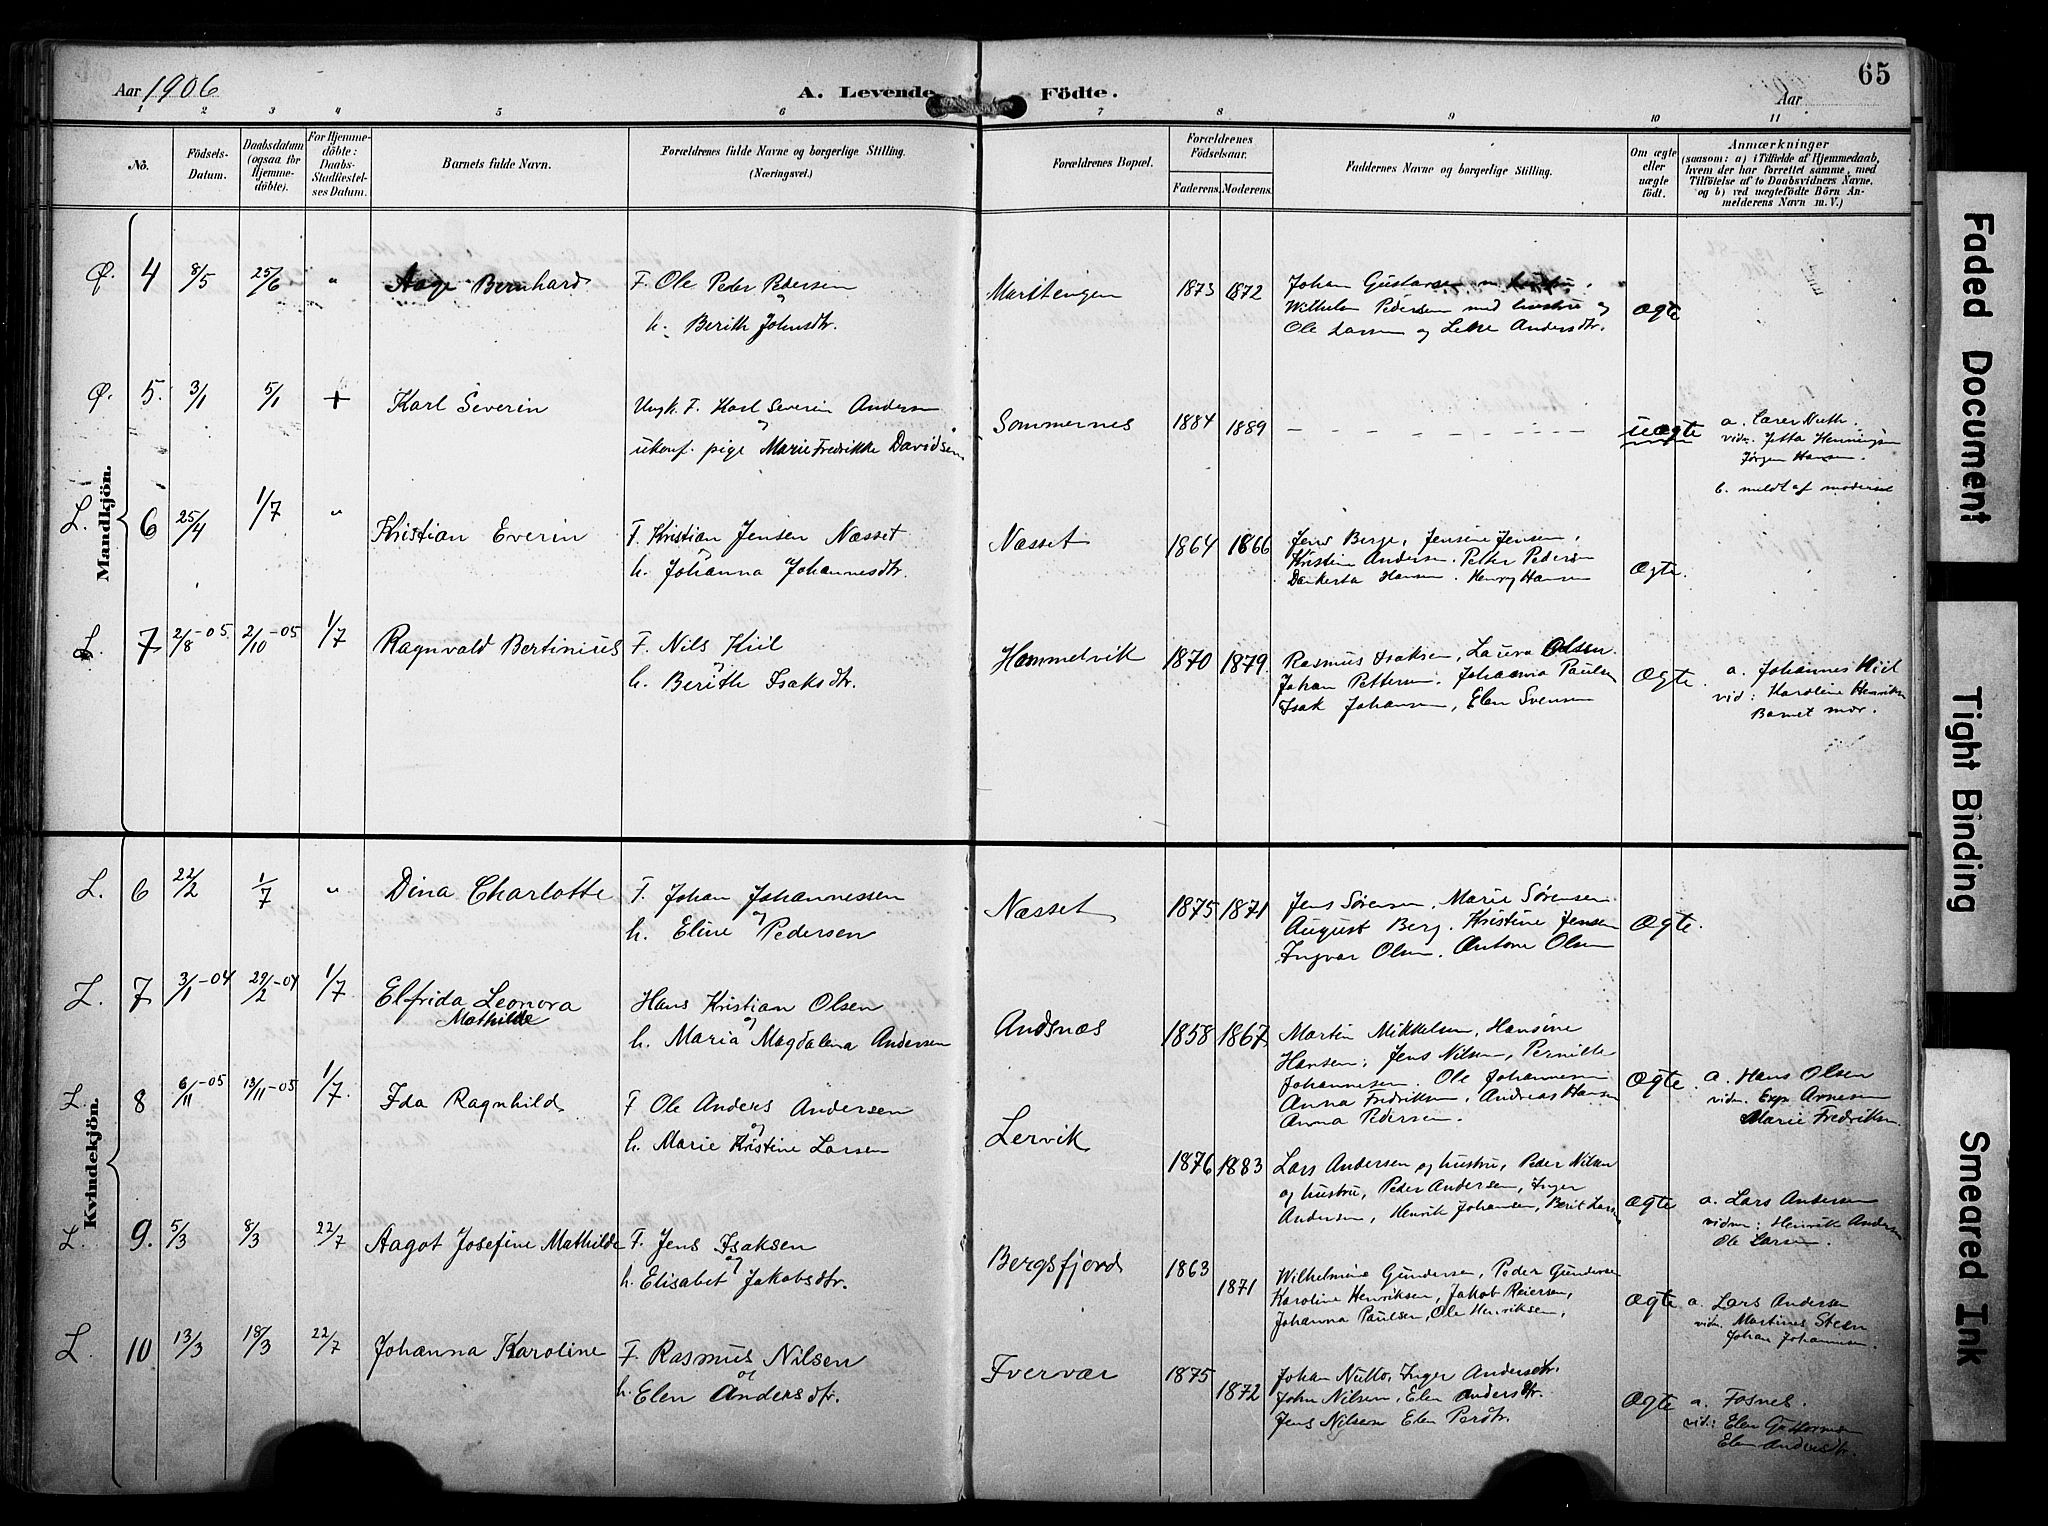 Aar 1906
A. Levende Födte.
65
Aar
1 2 3 4 5 6 7 8 9 10 11
No.
Födsels-Datum.
Daabsdatum (ogsaa for Hjemmedöbte).
For Hjemmedöbte: Daabs-Stadfæstelses Datum.
Barnets fulde Navn.
Forældrenes fulde Navne og borgerlige Stilling.
(Næringsvei.)
Forældrenes Bopæl.
Forældrenes Födselsaar.
Faderens. Moderens.
Faddernes Navne og borgerlige Stilling.
Om ægte eller uægte födt.
Anmærkninger
(saasom: a) i Tilfælde af Hjemmedaab,
hvem der har forrettet samme, med
Tilföielse af to Daabsvidners Navne,
og b) ved uægtefödte Börn Anmelderens Navn m. V.)
Mandkjön.
Ø. 4 8/5 25/6 " Aage Bernhard
F. Ole Peder Pedersen
og
h. Berith Johnsdtr.
1873 1872
Johan Gustavsen m hustru,
Wilhelm Pedersen med hustru og
Ole Larsen og Andersdtr.
Ægte
Ø. 5. 3/1 5/1 + Karl Severin
Ungk. F. Karl Severin Andersen
og
ukonf. pige Marie Fredrikke Davidsen
Sommernes 1884 1889
uægte
a. Lærer Nuth.
vidn. Jetta Henningsen
Jørgen Hansen.
b. meldt af moderen
L. 6 25/4 1/7 " Kristian Everin
F. Kristian Jensen Næsset
og
h. Johanna Johannesdtr.
Næsset 1864 1866
Jens Berge, Jensine Jensen,
Kristine Andersen. Petter Pedersen
Dankerta Hansen. Henry Hansen
Ægte.
L. 7 2/8-05. 2/10-05 1/7 Ragnvald Bertinius
F. Nils Kiil
og
h. Berith Isaksdtr.
Hammelvik 1870 1879.
Rasmus Isaksen, Laura Olsen.
Johan Pettersen. Johanna Paulsen
Isak Johansen, Elen Svensen
Ægte.
a. Johannes Kiil
vid: Karoline Henriksen
Barnet mor.
Kvindekjön.
L. 6 22/2 1/7 " Dina Charlotte
F. Johan Johannessen
og
h. Eline Pedersen
Næsset 1875 1871
Jens Sørensen, Marie Sørensen.
August Berg. Kristine Jensen
Ingvar Olsen. Antone Olsen
Ægte.
L. 7 3/1-04 29/2-04 1/7 Elfrida Leonora
Mathilde
Hans Kristian Olsen
og
h. Maria Magdalena Andersen
Andsnæs 1858 1867
Martin Mikkelsen, Hansine
Hansen, Jens Nilsen, Pernille
Johannesen. Ole Johannesen
Anna Fredriksen, Andreas Hansen
Anna Pedersen.
Ægte.
a. Hans Olsen
vidn. Exp. Arnesen
Marie Fredriksen.
L. 8 6/11-05 13/11-05 1/7. Ida Ragnhild
F Ole Anders Andersen
og
h. Marie Kristine Larsen
Lervik 1876 1883
Lars Andersen og hustru, Peder Nilsen
og hustru, Peder Andersen, Inger
Andersen, Henrik Johansen, Berit Larsen
Ægte
a. Lars Andersen
vidner: Henrik Andersen
Ole Larsen.
L. 9. 5/3 8/3 22/7 Aagot Josefine Mathilde
F. Jens Isaksen
og
h. Elisabet Jakobsdtr.
Bergsfjord 1863 1871
Wilhelmine Gundersen, Peder Gundersen
Karoline Henriksen, Jakob Reiersen,
Johanna Paulsen, Ole Henriksen,
Ægte
a. Lars Andersen
vidn. Martinus Steen
Johan Johannesen.
L. 10 13/3 18/3 22/7 Johanna Karoline
F. Rasmus Nilsen
og
h. Elen Andersdtr.
Tvervær 1875 1872
Johan Nutto, Inger Andersdtr.
John Nilsen, Elen Andersdtr.
Jens Nilsen Elen Persdtr.
Ægte
a. Fosnes.
vid: Elen Guttormsen
Elen Andersdtr.
Faded Document
Tight Binding
Smeared Ink